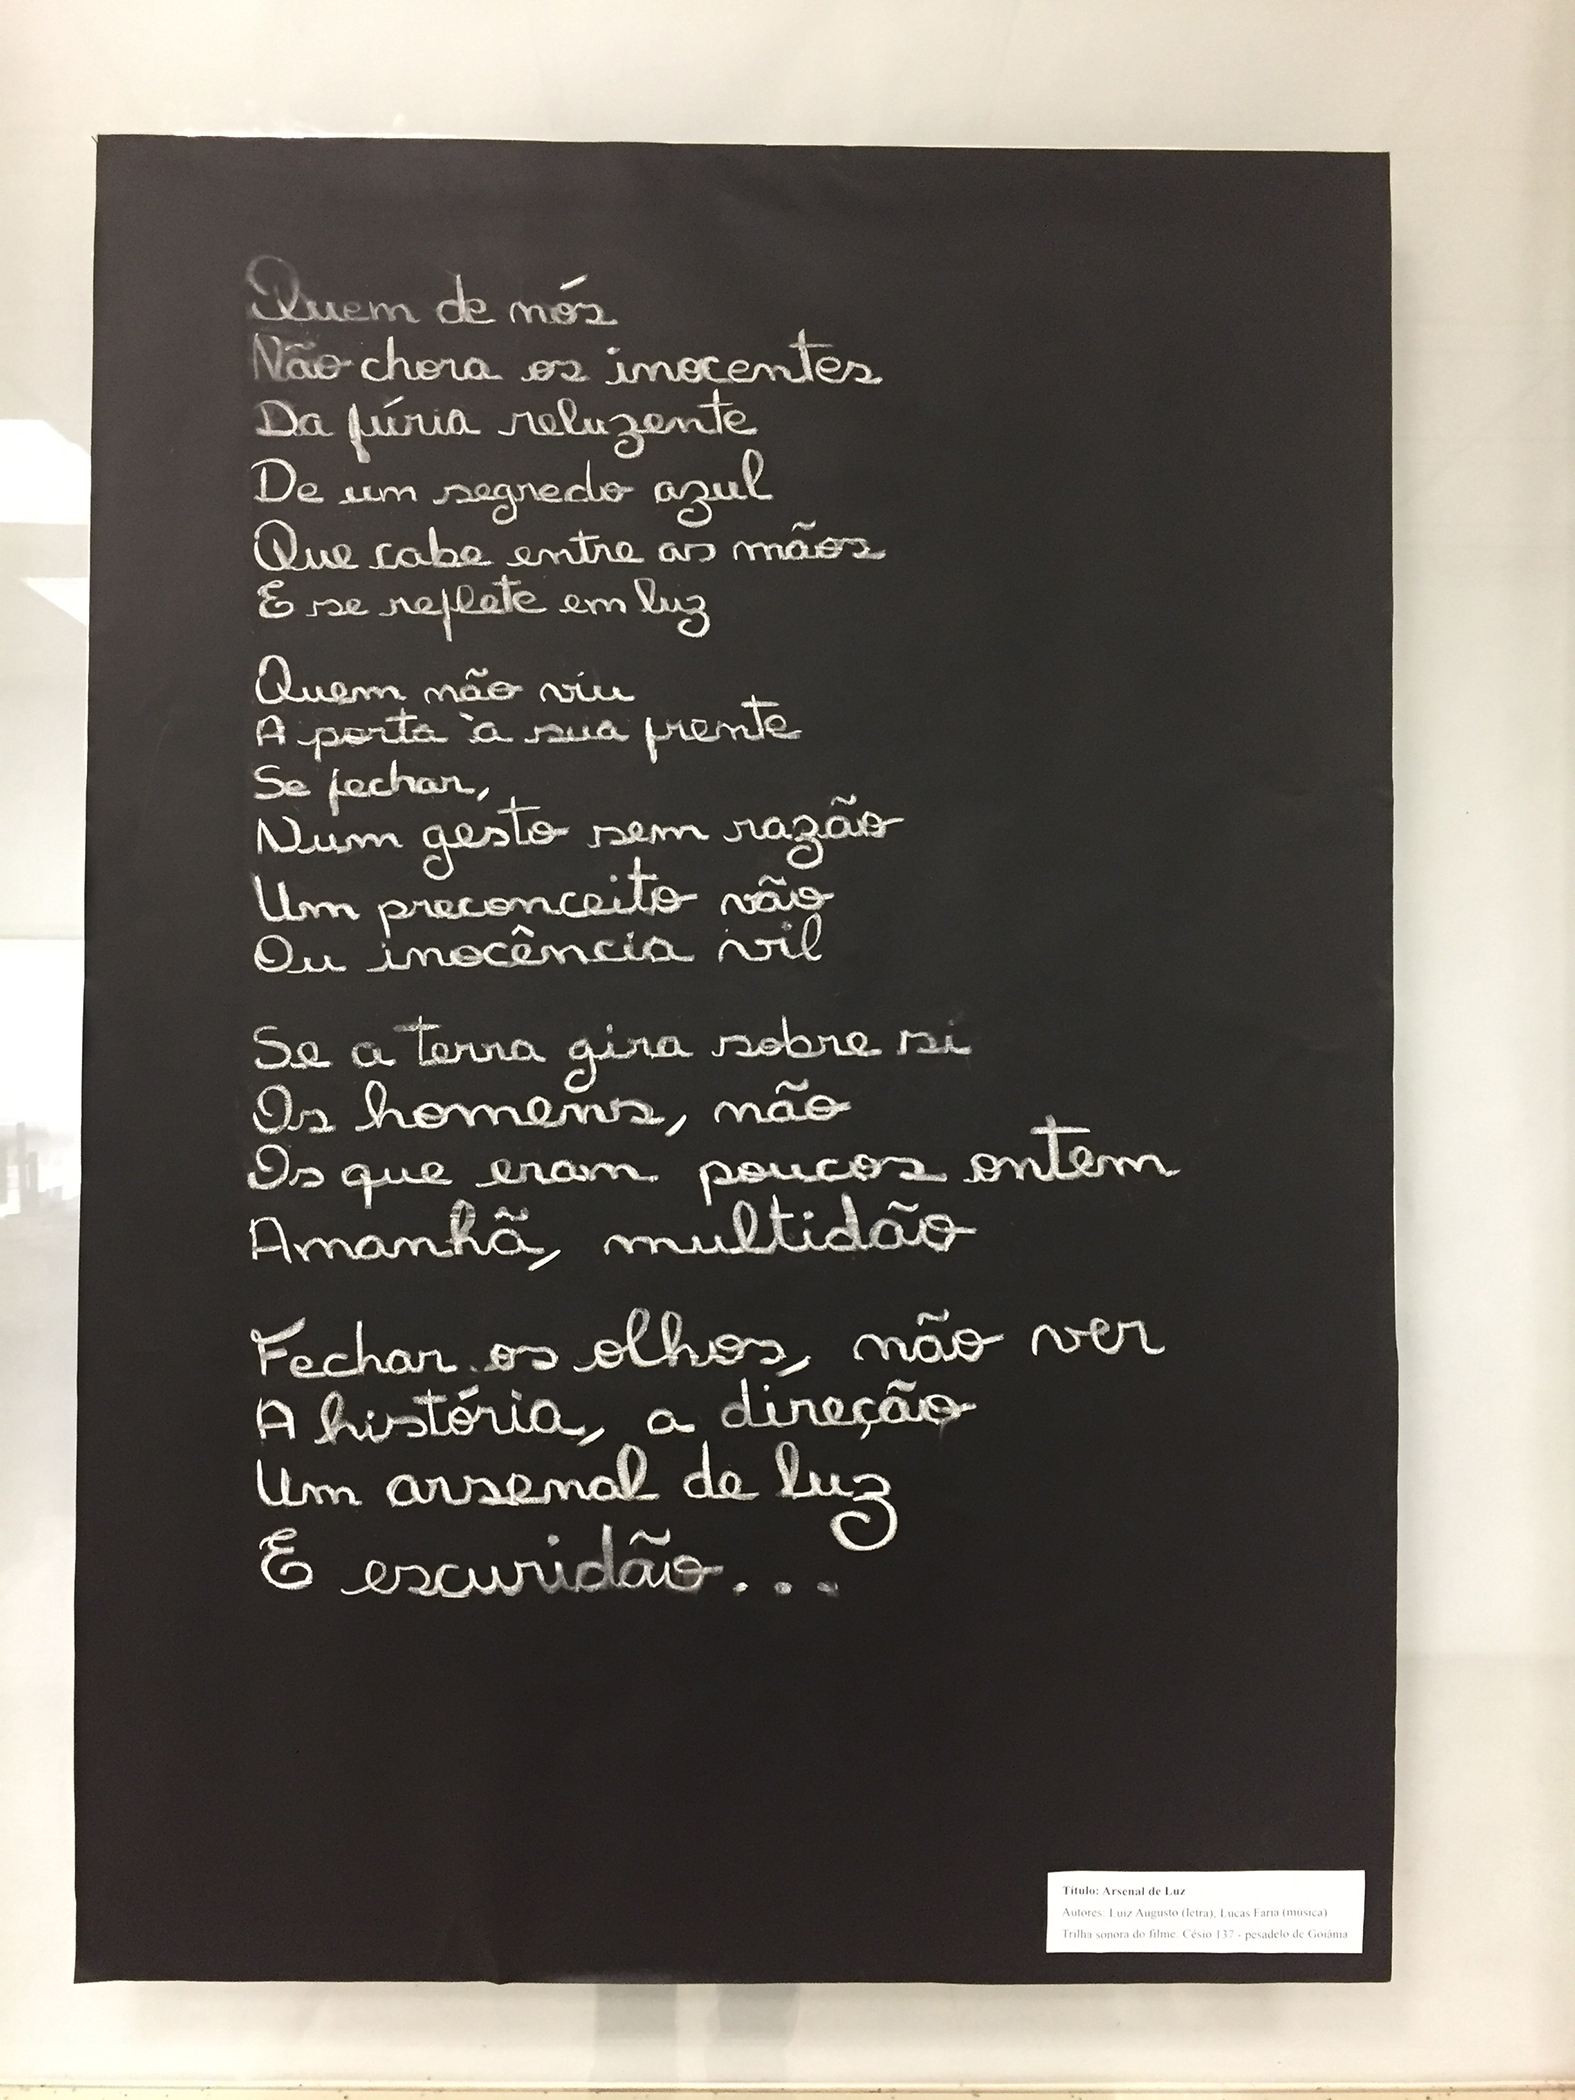 Quem de nós
Não chora os inocentes
Da fúria reluzente
De um segredo azul
Que cabe entre as mãos
E se reflete em luz
Quem não viu
A porta à sua frente
Se fechar,
Num gesto sem razão
Um preconceito vão
Ou inocência vil
Se a terra gira sobre si
Os homens, não
Os que eram poucos ontem
Amanhã, multidão
Fechar os olhos, não ver
A história, a direção
Um arsenal de luz
E escuridão...
Título: Arsenal de Luz
Autores: Luiz Augusto (letra); Lucas Faria (música)
Trilha sonora do filme: Césio 137 - pesadelo de Goiânia